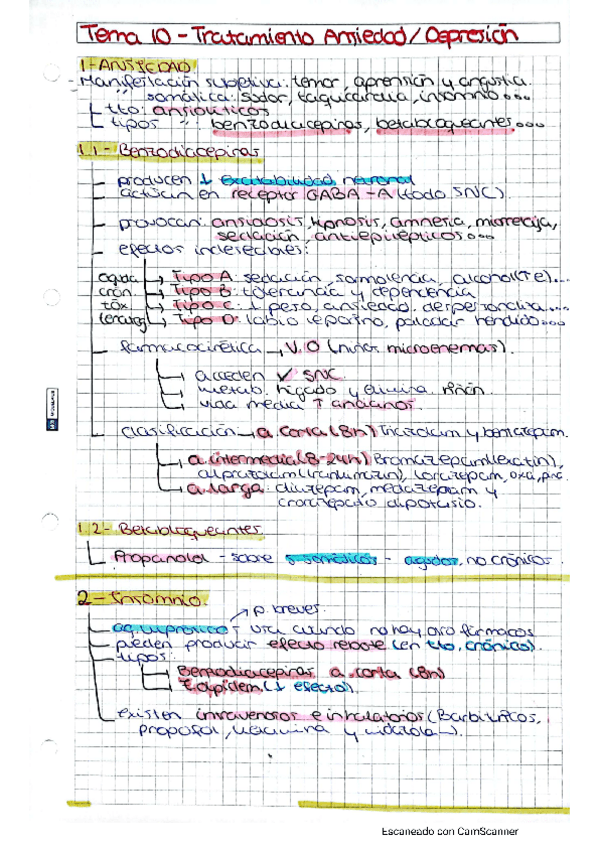 Tema 10 - Tratamiento Ansiedad/Depresión
1-ANSIEDAD
- Manifestación subjetiva: temor, aprensión y angustia.
" somática: sudor, taquicardia, insomnio...
tto: ansiolíticos
tipos " : benzodiacepinas, betabloqueantes...
1.1- Benzodiacepinas
producen ↓ excitabilidad neuronal
actúan en receptor GABA-A (todo SNC).
provocan: ansiolosis, hipnosis, amnesia, miorrelaja,
sedación, antiepilépticos...
efectos indeseables:
aguda → Tipo A: sedación, somnolencia, alcohol(Te)...
crón. → Tipo B: tolerancia y dependencia
tóx. → Tipo C: ↓ peso, ansiedad, despersonaliza....
→ Tipo D: labio leporino, paladar hendido...
farmacocinética → V.O (niños microenemas).
acceden ✓ SNC.
metab. hígado y elimina. riñón.
vida media ↑ ancianos.
clasificación → a. corta (8h) Triazolam y bentazepam.
a. intermedia (8-24h) Bromazepam (lexatin),
alprazolam (trankimazin), lorazepam, oxa,
a. larga: diazepam, medazepam y
clorazepato dipotásio.
1.2- Betabloqueantes
Propanolol - sobre s. somáticos - agudos, no crónicos.
2- Insomnio.
↗ p. breves.
usa cuando no hay otro fármacos
pueden producir efecto rebote (en tto. crónico).
tipos:
Benzodiacepinas a. corta (8h)
Zolpidem (↓ efecto).
existen intravenosos e inhalatorios (Barbitúricos,
propofol, ketamina y
Escaneado con CamScanner